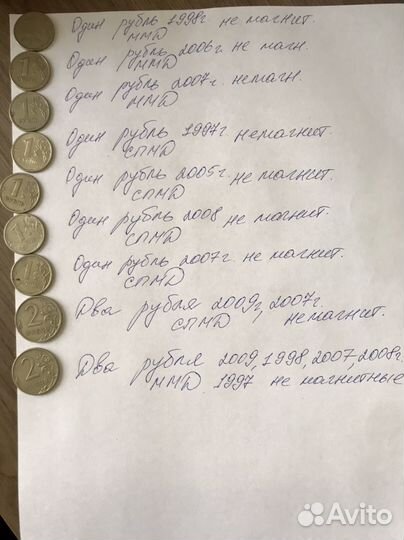 Один рубль 1998г не магнит.
ММД
Один рубль 2006г. не магн.
ММД
Один рубль 2007г. немагн.
ММД
Один рубль 1997г немагнит.
СПМД
Один рубль 2005г. не магнит.
СПМД
Один рубль 2008 не магнит.
СПМД
Один рубль 2007г. не магнит.
СПМД
Два рубля 2009г, 2007г.
СПМД немагнит.
Два рубля 2009, 1998, 2007, 2008г.
ММД 1997 не магнитные
1
1
1
1
1
1
2
2
Avito